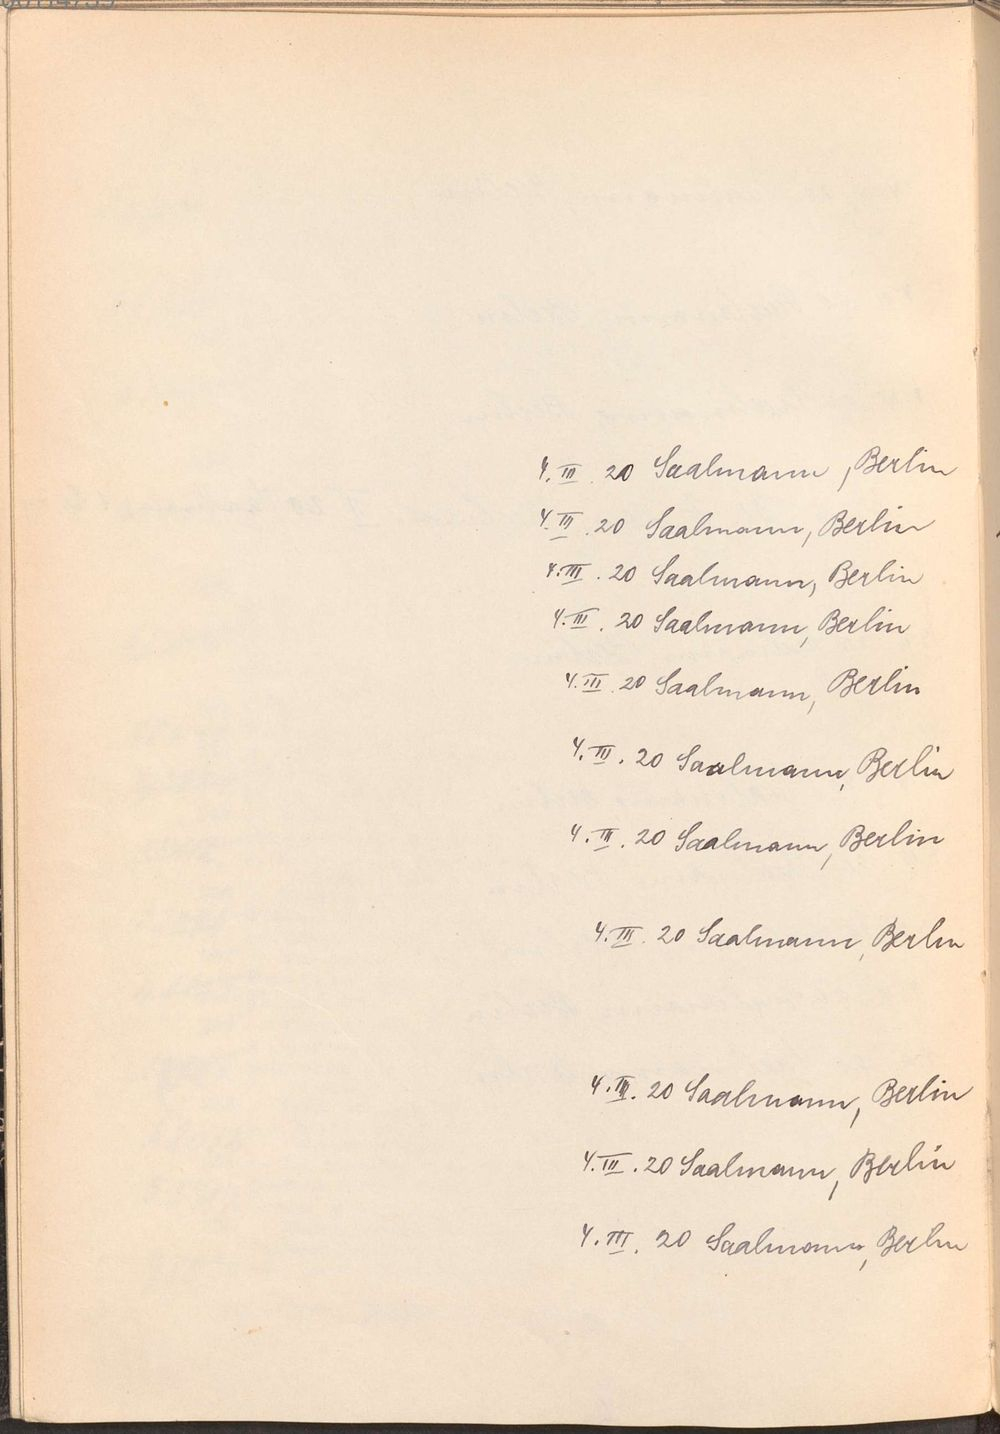 4. III. 20 Saalmann, Berlin
4. III. 20 Saalmann, Berlin
4. III. 20 Saalmann, Berlin
4. III. 20 Saalmann, Berlin
4. III. 20 Saalmann, Berlin
4. III. 20 Saalmann, Berlin
4. III. 20 Saalmann, Berlin
4. III. 20 Saalmann, Berlin
4. III. 20 Saalmann, Berlin
4. III. 20 Saalmann, Berlin
4. III. 20 Saalmann, Berlin